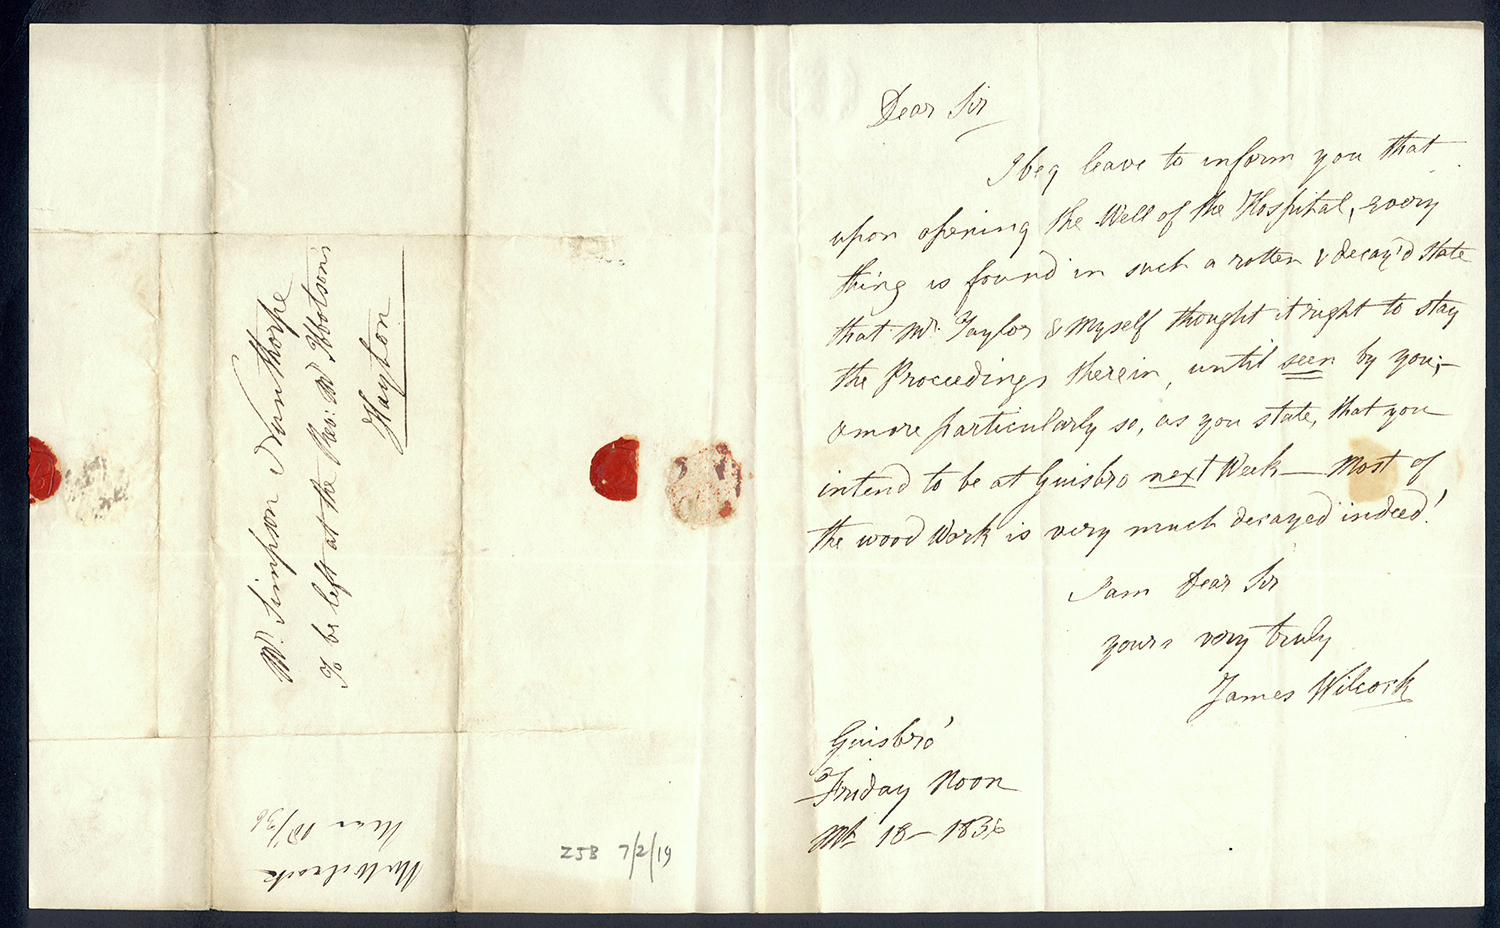 Dear Sir
I beg leave to inform you that
upon opening the Well of the Hospital, every
thing is found in such a rotten & decay'd state
that Mr. Taylor & Myself thought it right to stay
the Proceedings therein, until seen by you;—
& more particularly so, as you state, that you
intend to be at Guisbro next Week — Most of
the wood Work is very much decayed indeed!
I am Dear Sir
yours very truly
James Wilcock
Guisbro'
Friday Noon
Mh 18 – 1836
Mr. Simpson Nunthorpe
To be left at the Rev: Mr Ibbotson's
Hayton
Mr Wilcock
Mar 18/36
ZSB 7/2/19